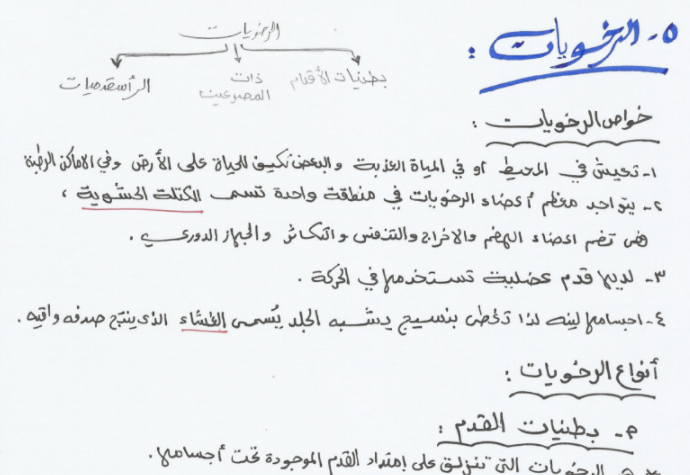 ٥- الرخويات :
الرخويات
بطنيات الأقدام
ذات المصرعين
الرأسقدميات
خواص الرخويات :
١- تعيش في المحيط او في المياة العذبة والبعض تكيف للحياة على الأرض وفي الاماكن الرطبة
٢- يتواجد معظم أعضاء الرخويات في منطقة واحدة تسمى الكتلة الحشوية ،
هي تضم اعضاء الهضم والاخراج والتنفس والتكاثر والجهاز الدوري .
٣- لديها قدم عضلية تستخدمها في الحركة .
٤- اجسامها لينه لذا تغطى بنسيج يشبه الجلد يُسمى الغشاء الذي ينتج صدفه واقيه .
أنواع الرخويات :
٢- بطنيات القدم :
الرخويات التي تنزلق على إمتداد القدم الموجودة تحت أجسامها .